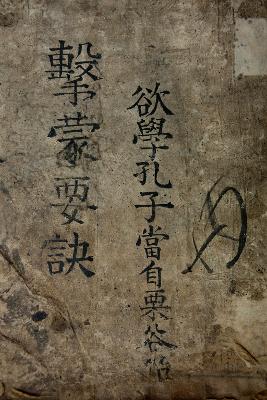 欲學孔子當自栗谷始
擊蒙要訣